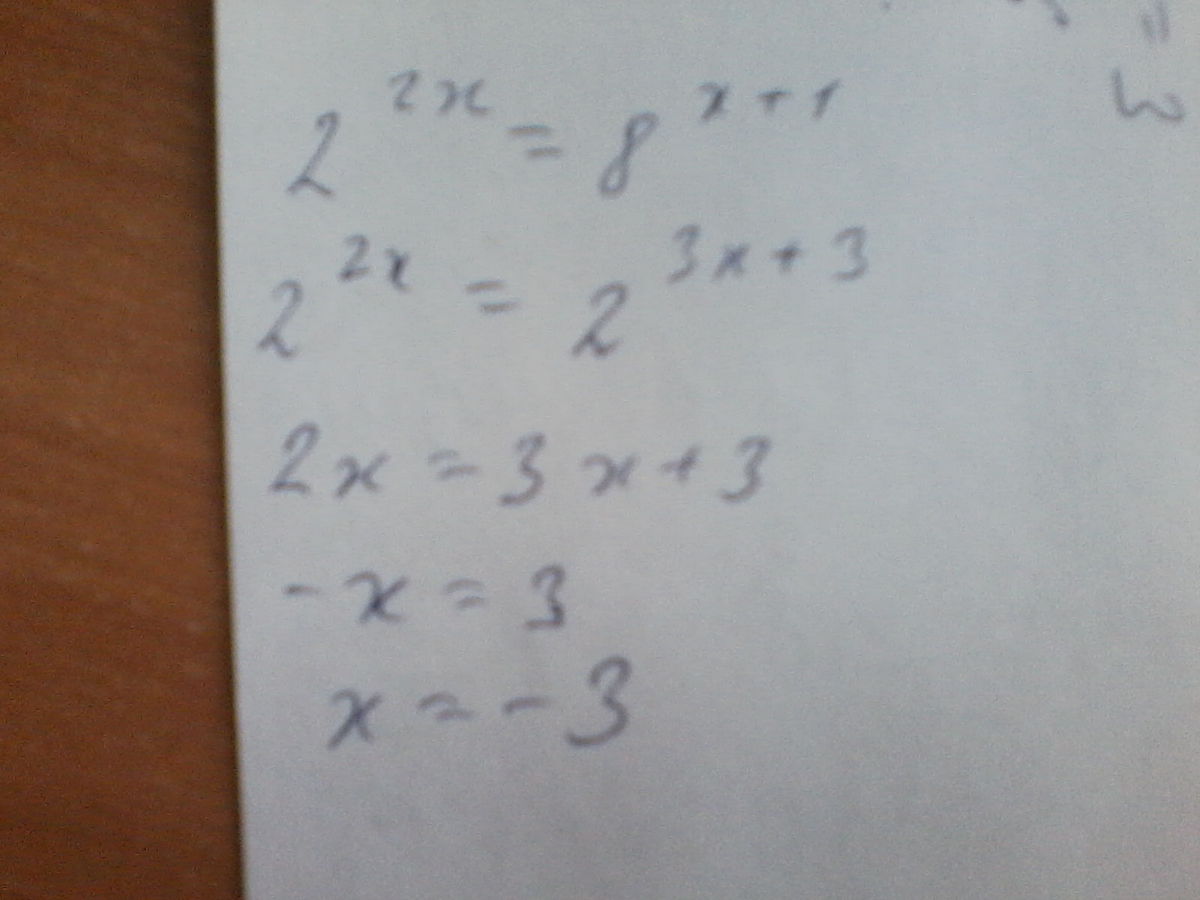 2^{2x} = 8^{x+1}
2^{2x} = 2^{3x+3}
2x = 3x+3
-x = 3
x = -3